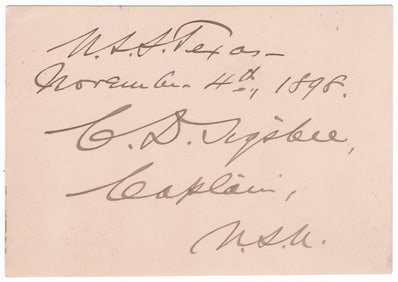 U.S.S. Texas—
November 4th, 1898.
C. D. Sigsbee,
Captain,
U.S.N.